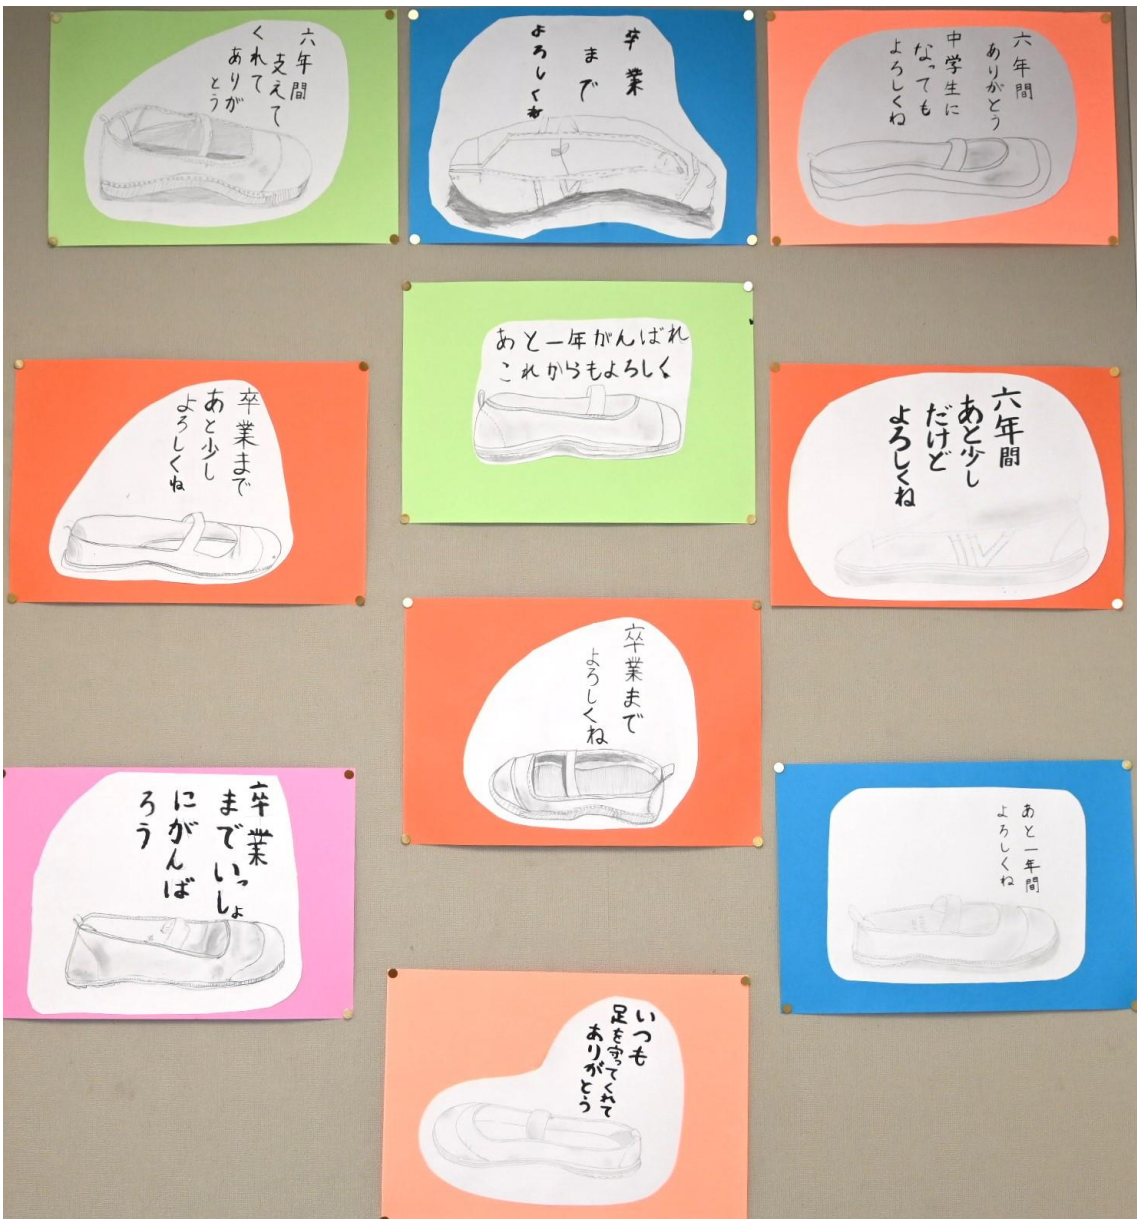 六年間
支えて
くれて
ありが
とう
卒業
まで
よろしくね
六年間
ありがとう
中学生に
なっても
よろしくね
あと一年がんばれ
これからもよろしく
卒業まで
あと少し
よろしくね
六年間
あと少し
だけど
よろしくね
卒業まで
よろしくね
卒業
までいっしょ
にがんば
ろう
あと一年間
よろしくね
いつも
足を守ってくれて
ありがとう